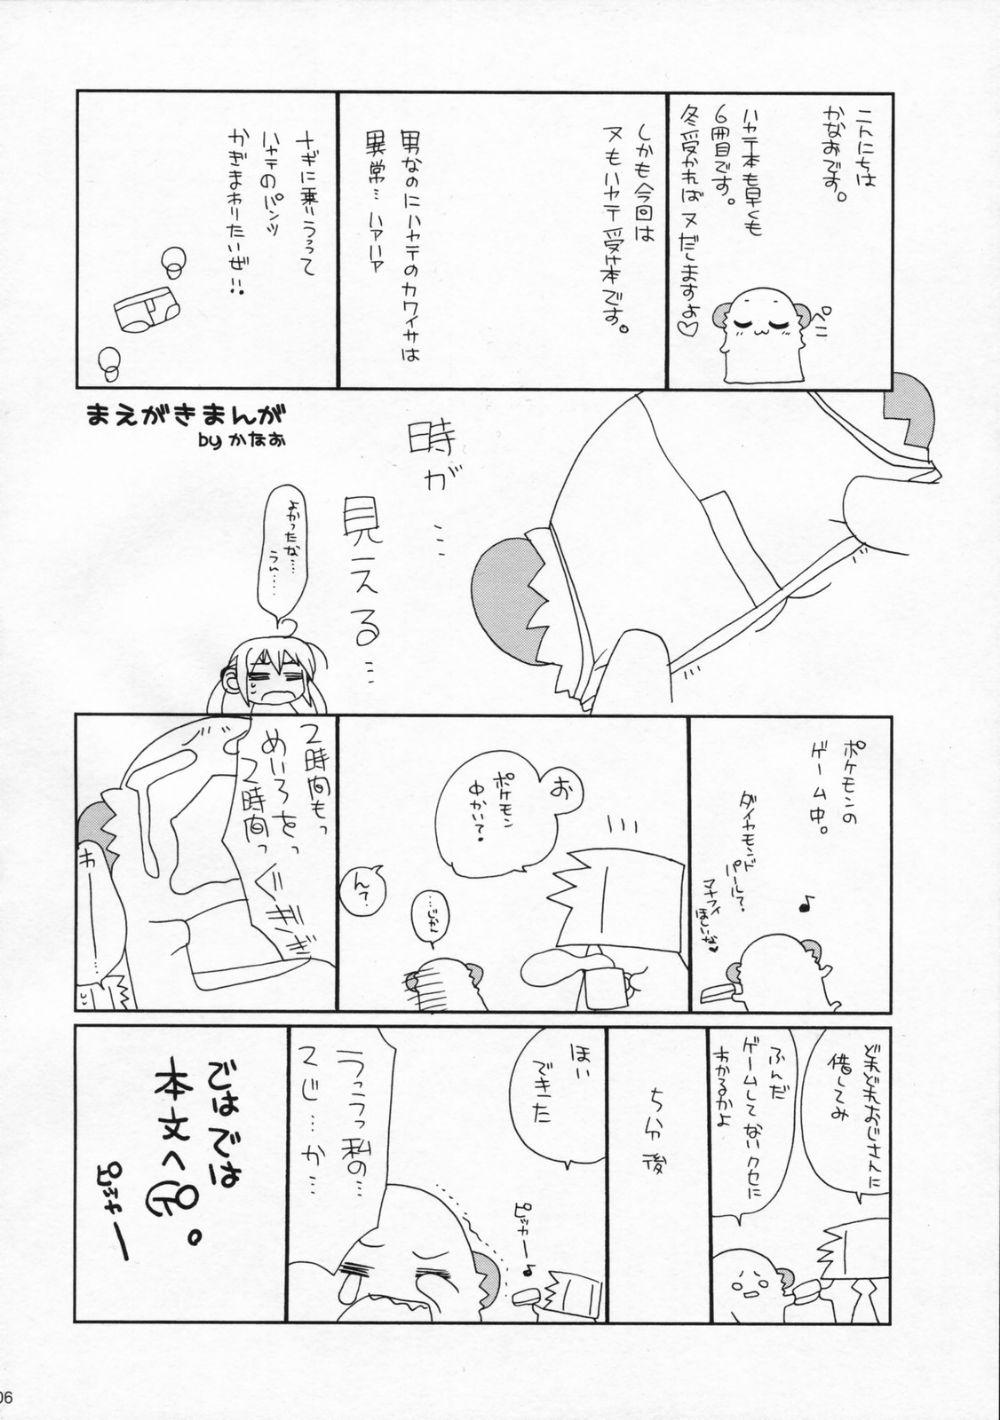 こんにちは
かなおです。
ハヤテ本も早くも
6冊目です。
冬受かればヌだしますよ♡
ペこ
しかも今回は
ヌもハヤテ受け本です。
男なのにハヤテのカワイサは
異常…ハアハア
ナギに乗りうつって
ハヤテのパンツ
かぎまわりたいぜ!!
まえがきまんが
by かなお
時が…
見える…
よかったな…
うん…
ポケモンの
ゲーム中。
ダイヤモンド
パールて。
マナフィ
ほしいな♥
♪
お
ポケモン
中かい?
…じかん
んて?
2時間もっ
めいろをっ
2時間っ
ぐぎぎぎ
わ
ー
…
どれどれおじさんに
借してみ
ふんだ
ゲームしてないクセに
わかるかよ
5分後
ほい
できた
ピッカー♪
うっうっ私の…
2じ…か…
ではでは
本文へ